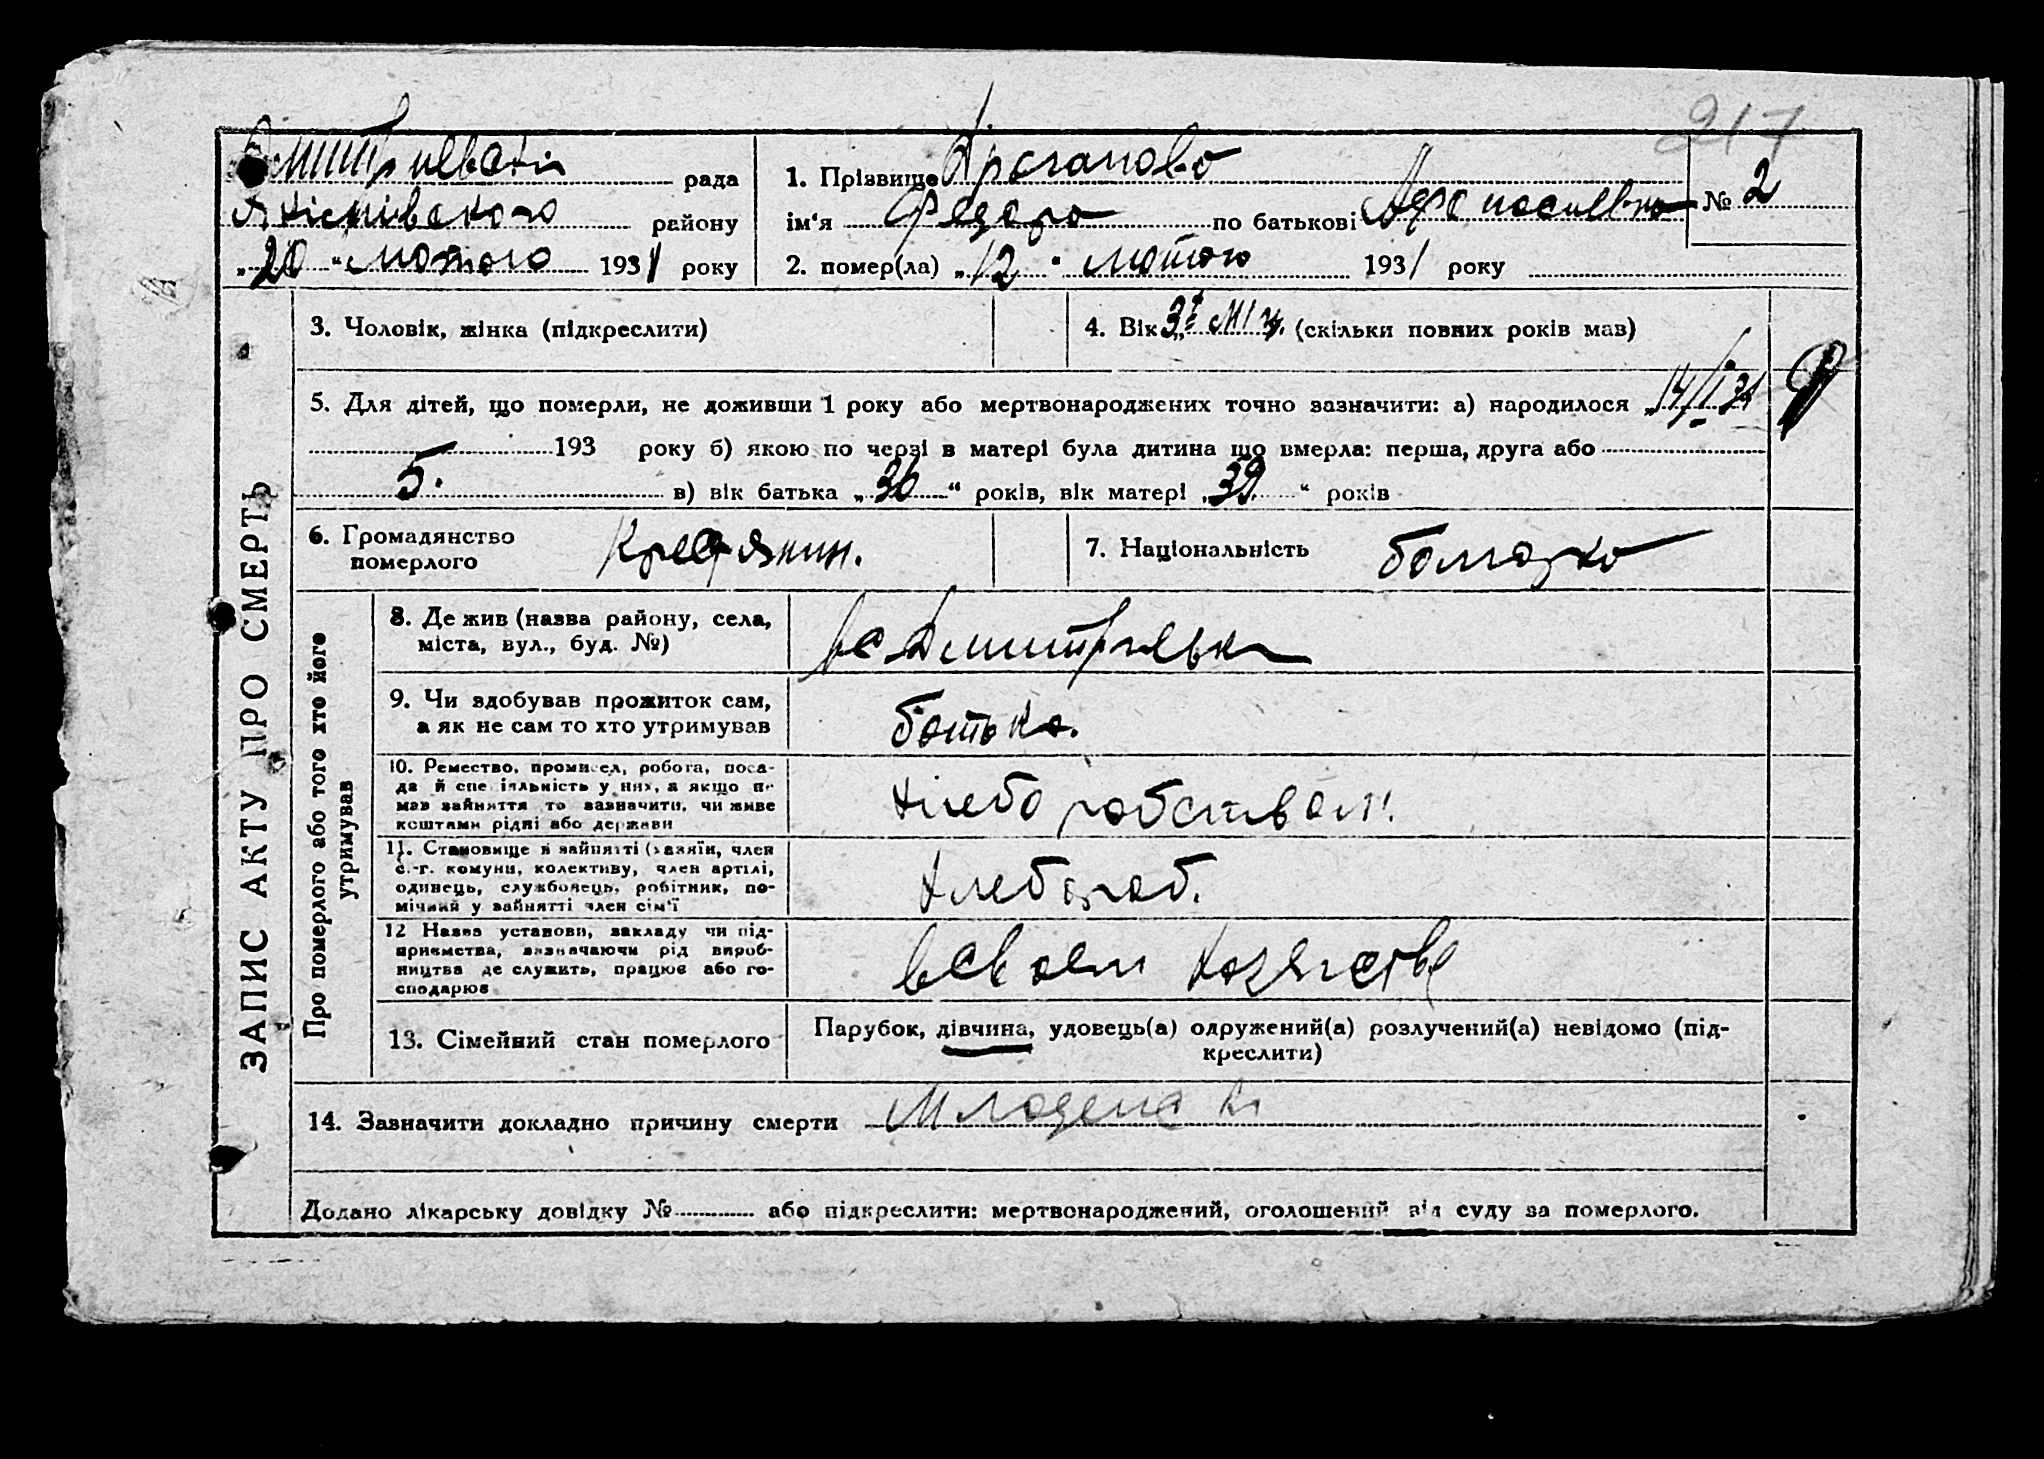 217
рада
1. Прізвище
№ 2
району
ім'я Федора по батькові
„20“ лютого 1931 року
2. помер(ла) „12“ лютого 1931 року
ЗАПИС АКТУ ПРО СМЕРТЬ
3. Чоловік, жінка (підкреслити)
4. Вік „3 міц. (скільки повних років мав)
5. Для дітей, що померли, не доживши 1 року або мертвонароджених точно зазначити: а) народилося „14/I 31
193 року б) якою по черзі в матері була дитина що вмерла: перша, друга або
5. в) вік батька „36“ років, вік матері „39“ років
6. Громадянство
померлого
7. Національність болгарка
Про померлого або того хто його
утримував
8. Де жив (назва району, села,
міста, вул., буд. №)
9. Чи здобував прожиток сам,
а як не сам то хто утримував
батько.
10. Ремество, промисел, робота, поса-
да й спеціяльність у них, а якщо не
мав зайняття то зазначити, чи живе
коштами рідні або держави
хлебо робством.
11. Становище в зайнятті (хазяїн, член
с.-г. комуни, колективу, член артілі,
одинець, службовець, робітник, по-
мічний у зайнятті член сім'ї
хлебороб.
12 Назва установи, закладу чи під-
приємства, зазначаючи рід вироб-
ництва де служить, працює або го-
сподарює
в своем хозяйстве
13. Сімейний стан померлого
Парубок, дівчина, удовець(а) одружений(а) розлучений(а) невідомо (під-
креслити)
14. Зазначити докладно причину смерти
Додано лікарську довідку № або підкреслити: мертвонароджений, оголошений від суду за померлого.